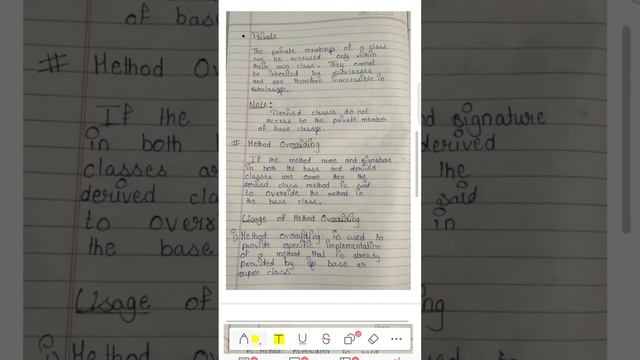 • Private
The private members of a class
can be accessed only within
their own class. They cannot
be inherited by subclasses
and are therefore inaccessible in
subclasses.
Note:
Derived classes do not
access to the private member
of base classes.
# Method Overriding
If the method name and signature
in both the base and derived
classes are same then the
derived class method is said
to override the method in
the base class.
Usage of Method Overriding
i) Method overriding is used to
provide specific implementation
of a method that is already
provided by its base or
super class